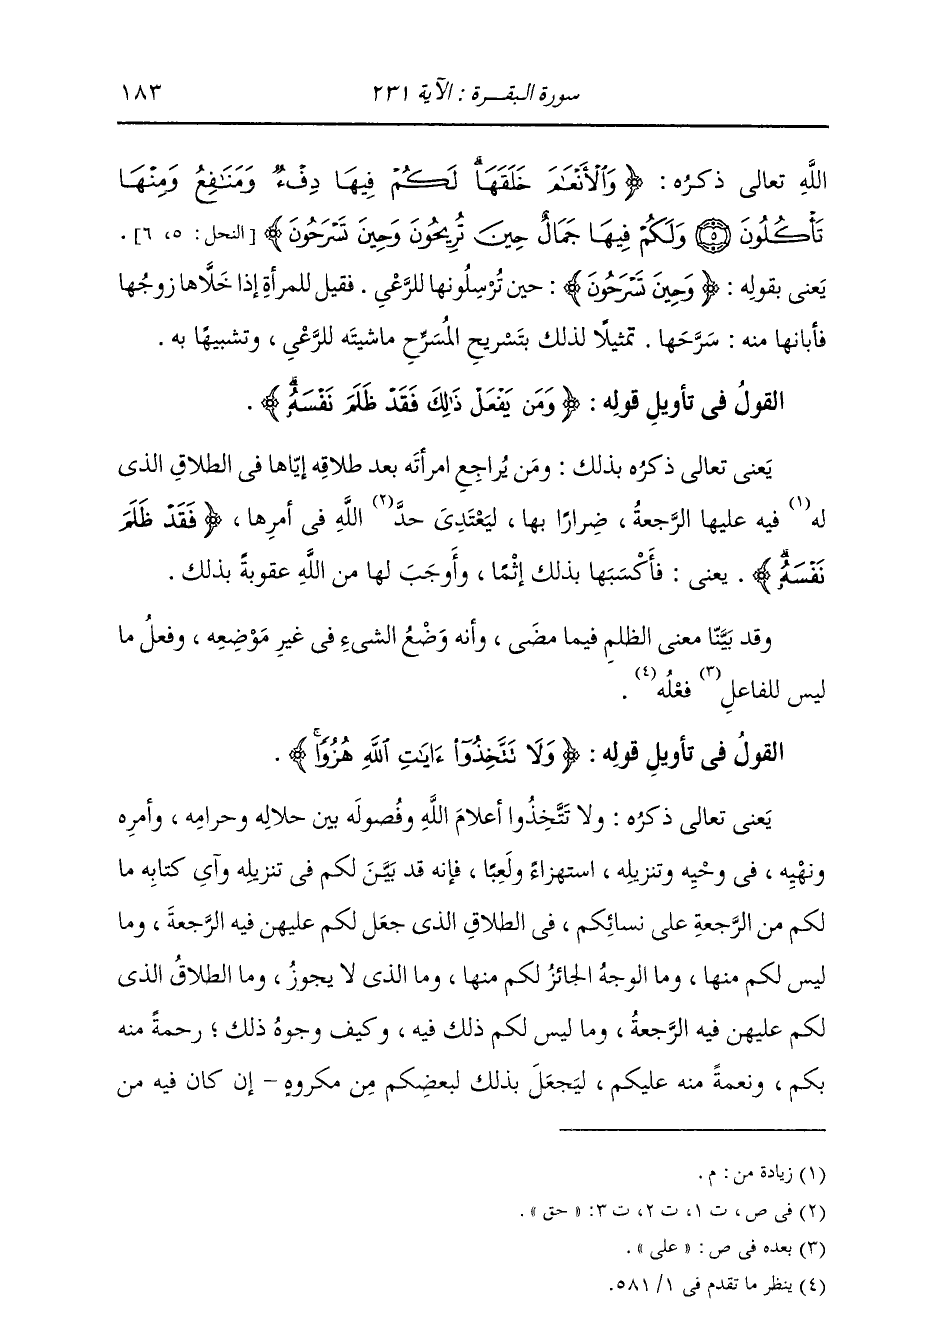 سورة البقرة : الآية ٢٣١ ١٨٣
اللَّهِ تعالى ذكرُه : ﴿ وَٱلْأَنْعَٰمَ خَلَقَهَاۗ لَكُمْ فِيهَا دِفْءٌ وَمَنَٰفِعُ وَمِنْهَا
تَأْكُلُونَ ﴿٥﴾ وَلَكُمْ فِيهَا جَمَالٌ حِينَ تُرِيحُونَ وَحِينَ تَسْرَحُونَ ﴾ [ النحل : ٥، ٦] .
يَعنى بقولِه : ﴿ وَحِينَ تَسْرَحُونَ ﴾ : حين تُرْسِلُونها للرَّعْيِ . فقيل للمرأةِ إذا خَلَّاها زوجُها
فأبانها منه : سَرَّحَها . تمثيلًا لذلك بتَسْريحِ المُسَرِّحِ ماشيتَه للرَّعْيِ ، وتشبيهًا به .
القولُ فى تأويلِ قولِه : ﴿ وَمَن يَفْعَلْ ذَٰلِكَ فَقَدْ ظَلَمَ نَفْسَهُۥۗ ﴾ .
يَعنى تعالى ذكرُه بذلك : ومَن يُراجِعِ امرأتَه بعد طلاقِه إيّاها فى الطلاقِ الذى
له(١) فيه عليها الرَّجعةُ ، ضِرارًا بها ، ليَعْتَدِىَ حدَّ(٢) اللَّهِ فى أمرِها ، ﴿ فَقَدْ ظَلَمَ
نَفْسَهُۥۗ ﴾ . يعنى : فأَكْسَبَها بذلك إثْمًا ، وأَوجَبَ لها من اللَّهِ عقوبةً بذلك .
وقد بَيَّنّا معنى الظلمِ فيما مضَى ، وأنه وَضْعُ الشىءِ فى غيرِ مَوْضِعِه ، وفعلُ ما
ليس للفاعلِ(٣) فعْلُه(٤) .
القولُ فى تأويلِ قولِه : ﴿ وَلَا تَتَّخِذُوٓا۟ ءَايَٰتِ ٱللَّهِ هُزُوًاۚ ﴾ .
يَعنى تعالى ذكرُه : ولا تَتَّخِذُوا أعلامَ اللَّهِ وفُصولَه بين حلالِه وحرامِه ، وأمرِه
ونهْيِه ، فى وحْيِه وتنزيلِه ، استهزاءً ولَعِبًا ، فإنه قد بَيَّنَ لكم فى تنزيلِه وآيِ كتابِه ما
لكم من الرَّجعةِ على نسائِكم ، فى الطلاقِ الذى جعَل لكم عليهن فيه الرَّجعةَ ، وما
ليس لكم منها ، وما الوجهُ الجائزُ لكم منها ، وما الذى لا يجوزُ ، وما الطلاقُ الذى
لكم عليهن فيه الرَّجعةُ ، وما ليس لكم ذلك فيه ، وكيف وجوهُ ذلك ؛ رحمةً منه
بكم ، ونعمةً منه عليكم ، ليَجعَلَ بذلك لبعضِكم مِن مكروهٍ - إن كان فيه من
(١) زيادة من : م .
(٢) فى ص ، ت ١، ت ٢، ت ٣: « حق » .
(٣) بعده فى ص : « على » .
(٤) ينظر ما تقدم فى ١/ ٥٨١.